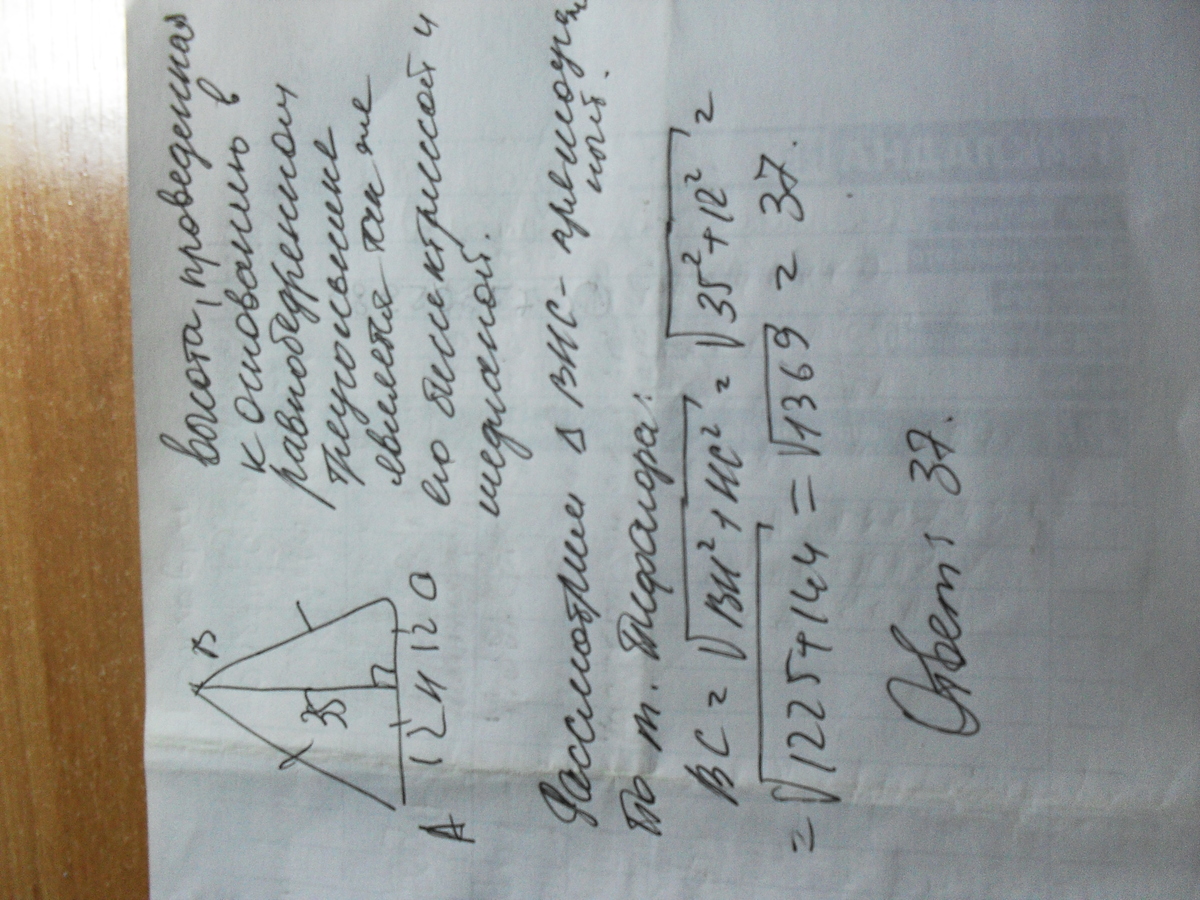 высота, проведенная
к основанию в
равнобедренном
треугольнике
является так же
его биссектрисой и
медианой.
B
35
A 12 H 12 C
Рассмотрим Δ BHC - прямоуголь
ный.
По т. Пифагора:
BC = √BH² + HC² = √35² + 12² =
= √1225 + 144 = √1369 = 37.
Ответ: 37.